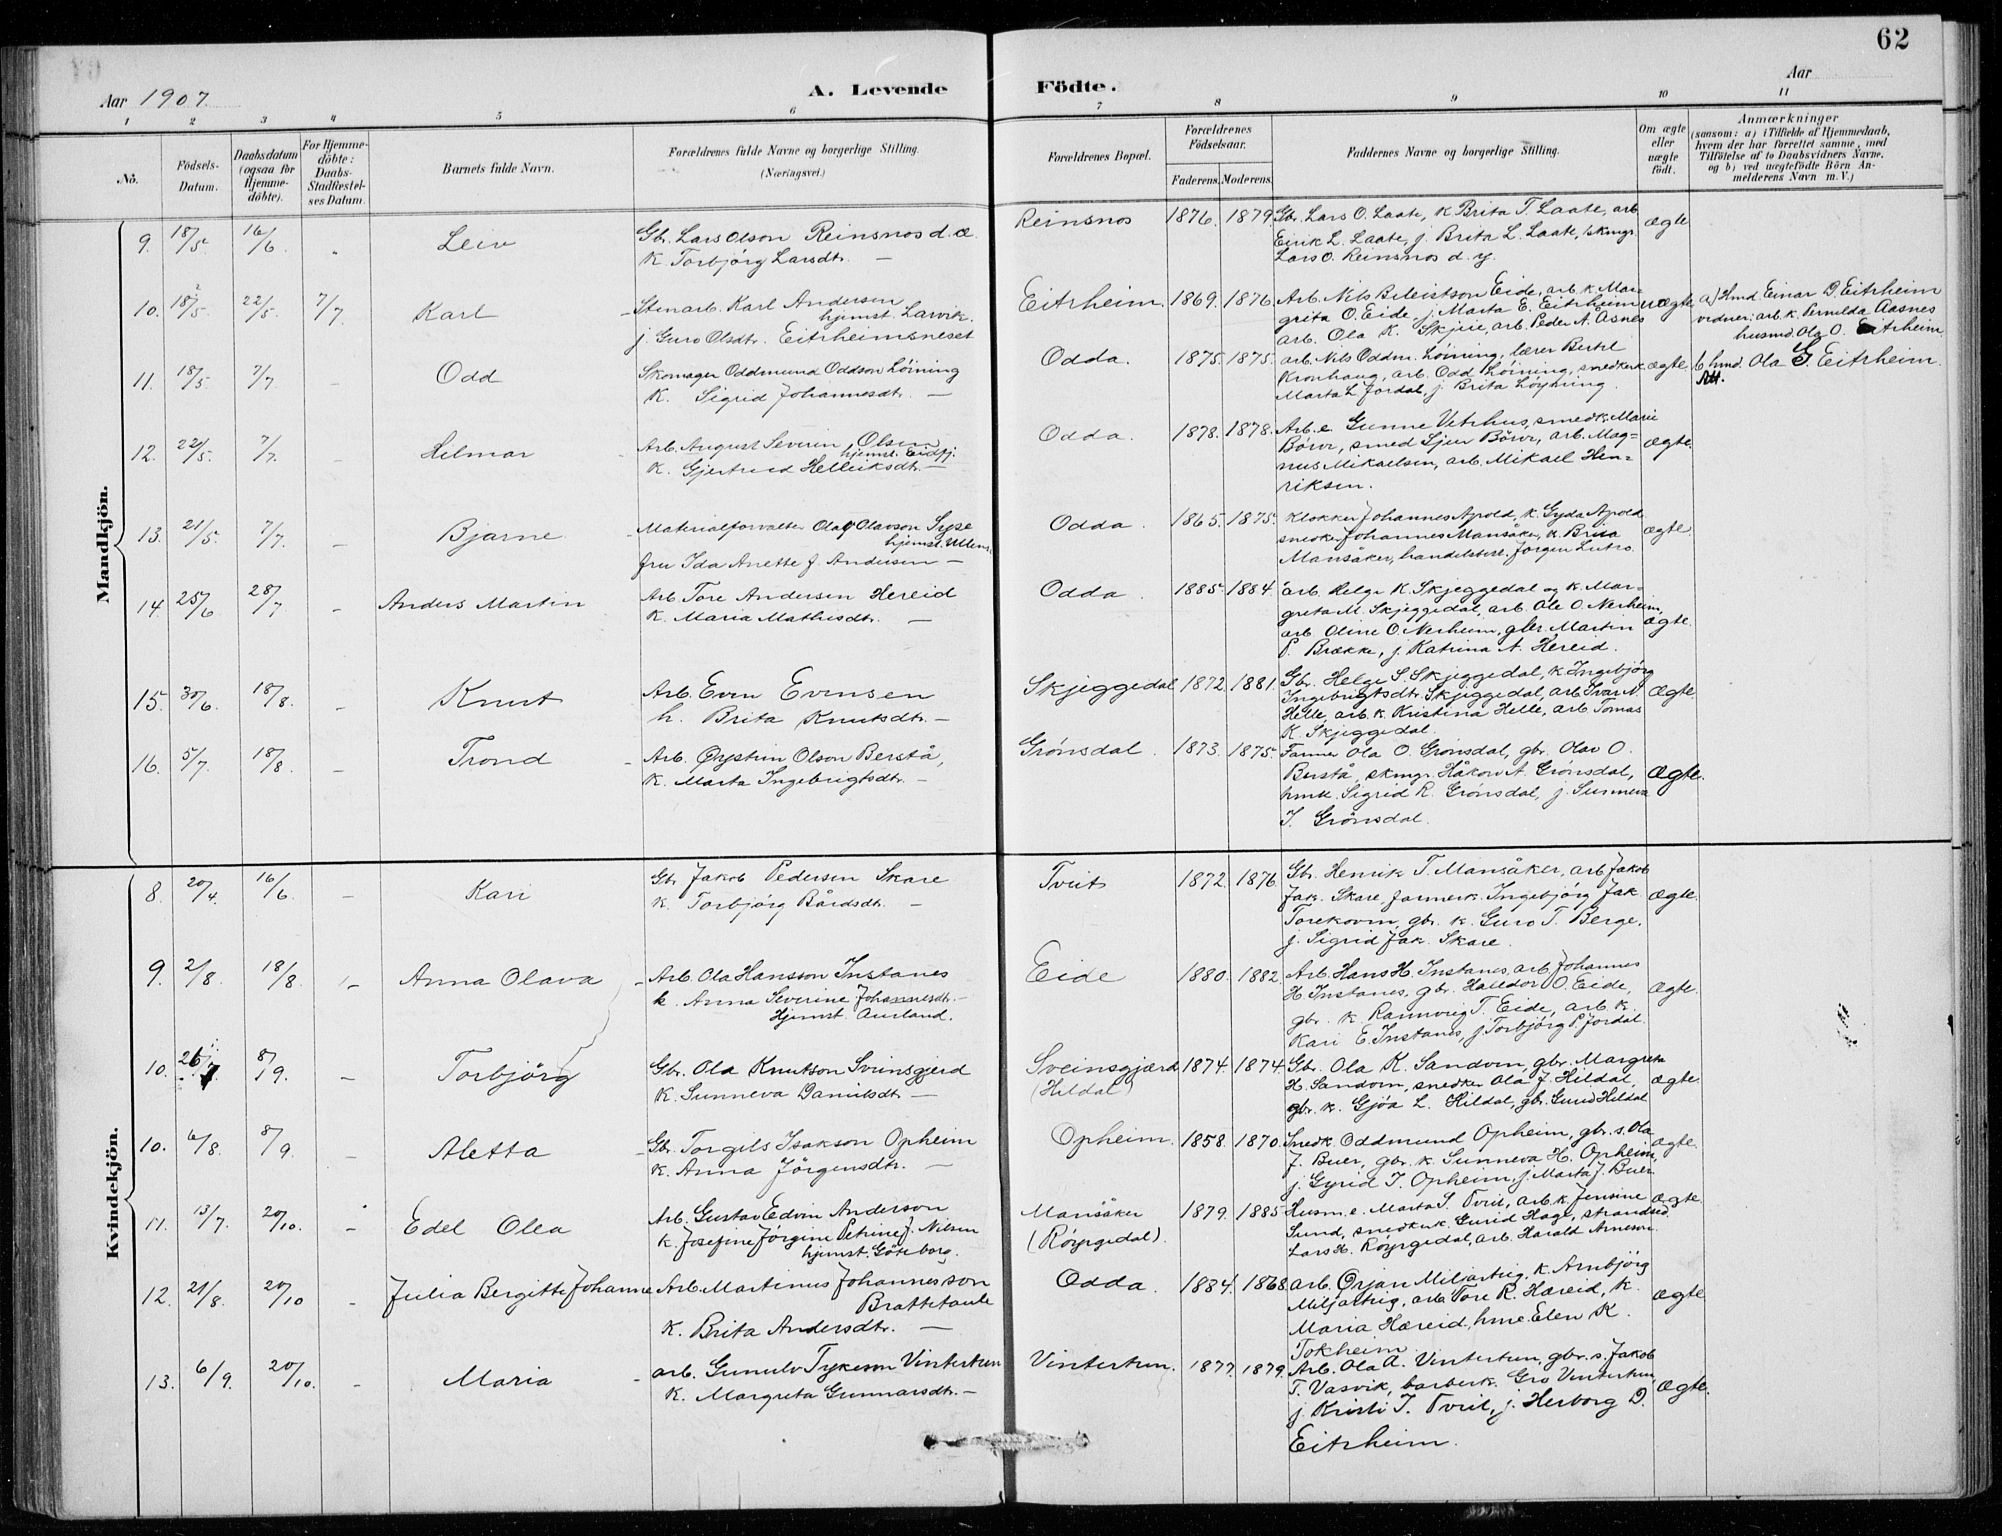 62
Aar 1907
A. Levende Födte.
Aar
1 2 3 4 5 6 7 8 9 10 11
Nö.
Födsels-Datum.
Daabsdatum (ogsaa for Hjemme-döbte).
For Hjemme-döbte: Daabs-Stadfæstel-ses Datum.
Barnets fulde Navn.
Forældrenes fulde Navne og borgerlige Stilling. (Næringsvei.)
Forældrenes Bopæl.
Forældrenes Födselsaar.
Faderens. Moderens.
Faddernes Navne og borgerlige Stilling.
Om ægte eller uægte födt.
Anmærkninger
(saasom: a) i Tilfælde af Hjemmedaab,
hvem der har forrettet samme, med
Tilföielse af to Daabsvidners Navne,
og b) ved uægtefödte Börn An-
melderens Navn m. V.)
Mandkjön.
9. 18/5 16/6 " Leiv
Gbr. Lars Olson Reinsnos d. æ.
K. Torbjörg Larsdtr. —
Reinsnos 1876. 1879.
Gbr. Lars O. Laate, K Brita T. Laate, arb
Eirik L. Laate, j. Brita L. Laate, skmgr
Lars O. Reinsnos d. y.
ægte
10. 18/5 22/5 7/7 Karl
Stenarb. Karl Andersen
hjemst. Larvik.
j. Guro Olsdtr. Eitrheimsneset
Eitrheim. 1869. 1876.
Arb. Nils Eide, arb. k. Mar-
grita O. Eide, j. Marta E. Eitrheim
arb. Ola K. Skjeie, arb. Peder N. Åsnes
uægte
a) Hmd. Einar D. Eitrheim
vidner: arb. k. Pernilda Aasnes
husmd. Ola O. Eitrheim.
b hmd. Ola G. Eitrheim.
11. 18/5 7/7 – Odd
Skomager Oddmund Oddson Löining
K. Sigrid Johannesdtr. —
Odda. 1875. 1875.
arb. Nils Oddm. Löining, lærer Bertel
Kronhaug, arb. Odd Löining, snedkerk.
Marta L. Jordal, j. Brita Löyning.
ægte
12. 22/5 7/7 – Hilmar
Arb. August Severin Olsen
hjemst. Eidfj.
K. Gjertrud Helleiksdtr. —
Odda. 1878. 1878.
Arb. e. Gunne Vetrhus, smedk. Marie
Börve, smed Sjur Börve, arb. Mag-
nus Mikaelsen, arb. Mikael Hen-
riksen.
ægte.
13. 21/5. 7/7. – Bjarne
Materialforvalter Olaf Olavson Sype
hjemst. Ullens.
fru Ida Anette f. Andersen —
Odda. 1865. 1875.
Klokker Johannes Apold, k. Gyda Apold,
snedker Johannes Mansåker, k. Brita
Mansåker, handelsbest. Jörgen Lutro.
ægte.
14. 25/6 28/7 – Anders Martin
Arb. Tore Andersen Hereid
K. Maria Mathisdtr. —
Odda. 1885. 1884.
arb. Helge K. Skjeggedal og k. Mar-
greta M. Skjeggedal, arb. Ole O. Nerheim,
arb. Oline O. Nerheim, gbr. Martin
P. Brække, j. Katrina A. Hereid.
ægte.
15. 30/6. 18/8. – Knut
Arb. Even Evensen
K. Brita Knutsdtr. —
Skjeggedal 1872. 1881.
Gbr. Helge S. Skjeggedal, k. Ingebjörg
Ingebrigtsdtr. Skjeggedal, arb. Ivar N.
Helle, arb. k. Kristina Helle, arb. Tomas
K. Skjeggedal.
ægte.
16. 5/7. 18/8 – Trond
Arb. Öystein Olson Berstå,
K. Marta Ingebrigtsdtr. —
Grönsdal. 1873. 1875.
Farmer Ola O. Grönsdal, gbr. Olav O.
Berstå, skmgr. Håkon A. Grönsdal,
hmk. Sigrid R. Grönsdal, j. Sunneva
I. Grönsdal.
ægte.
Kvindekjön.
8. 20/4. 16/6. – Kari
Gbr. Jakob Pedersen Skare
K. Torbjörg Bårdsdtr. —
Tveit 1872. 1876.
Gbr. Henrik T. Mansåker, arb. Jakob
Jak. Skare, farmerk. Ingebjörg Jak.
gbr. k. Guro T. Berge,
j. Sigrid Jak. Skare.
ægte.
9. 2/8. 18/8. – Anna Olava
Arb. Ola Hansson Instanes
k. Anna Severine Johannesdtr. —
Hjemst. Aurland.
Eide 1880. 1882.
Arb. Hans H. Instanes, arb. Johannes
H. Instanes, gbr. Halldor O. Eide,
gbr. k. Rannveig T. Eide, arb. k.
Kari E. Instanes, j. Torbjörg P. Jordal.
ægte.
10. 26/7. 8/9. – Torbjörg
Gbr. Ola Knutson Sveinsgjerd
K. Sunneva Danielsdtr. —
Sveinsgjærd (Hildal) 1874. 1874.
Gbr. Ola K. Sandvin, gbr. Margreta
H. Sandvin, snedker Ola J. Hildal,
gbr. k. Gjöa L. Hildal, gbr. Gurid Hildal
ægte.
10. 6/8. 8/9. – Aletta
Gbr. Torgils Isakson Opheim
K. Anna Jörgensdtr. —
Opheim. 1858. 1870.
Snedk. Oddmund Opheim, gbr. s. Ola
J. Buer, gbr. k. Sunneva H. Opheim,
j. Gyrid T. Opheim, j. Marta J. Buer.
ægte.
11. 13/7. 20/10. – Edel Olea
Arb. Gustav Edvin Anderson
k. Josefine Jörgine Petrine f. Nilsen
hjemst. Göteborg.
Mansåker (Röyrgedal). 1879. 1885.
Husm. e. Marta S. Tveit, arb. k. Jensine
Sund, snedkerk. Gurid Hage, strandsid.
Lars H. Röyrgedal, arb. Harald Arnesen.
ægte
12. 21/8. 20/10 – Julia Bergitte Johanne
Arb. Martinus Johannesson
Brattetaule
K. Brita Andersdtr. —
Odda. 1884. 1868.
arb. Örjan Miljarteig, k. Arnbjörg
Miljarteig, arb. Tore R. Hæreid, K.
Maria Hæreid, hme. Elen K.
Tokheim.
ægte
13. 6/9. 20/10. – Maria
arb. Gunulv Tykeson Vintertun
K. Margreta Gunnarsdtr. —
Vintertun. 1877. 1879.
Arb. Ola A. Vintertun, gbr. s. Jakob
T. Vasvik, barberk. Gro Vintertun,
j. Kristi T. Tveit, j. Herborg D.
Eitrheim.
ægte.